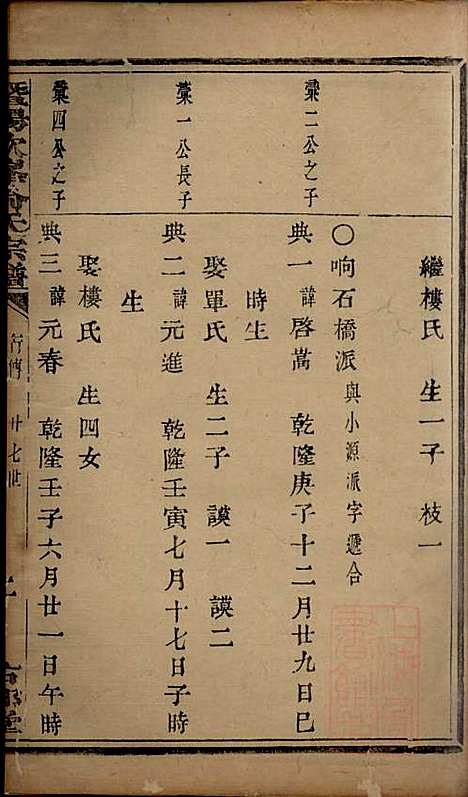 繼樓氏 生一子 枝一
〇响石橋派與小源派字遞合
槀二公之子
典一 諱啓嵩 乾隆庚子十二月廿九日巳
時生
娶單氏 生二子 謨一 謨二
槀一公長子
典二 諱元進 乾隆壬寅七月十七日子時
生
娶樓氏 生四女
槀四公之子
典三 諱元春 乾隆壬子六月廿一日午時
宗譜
行傳 廿七世